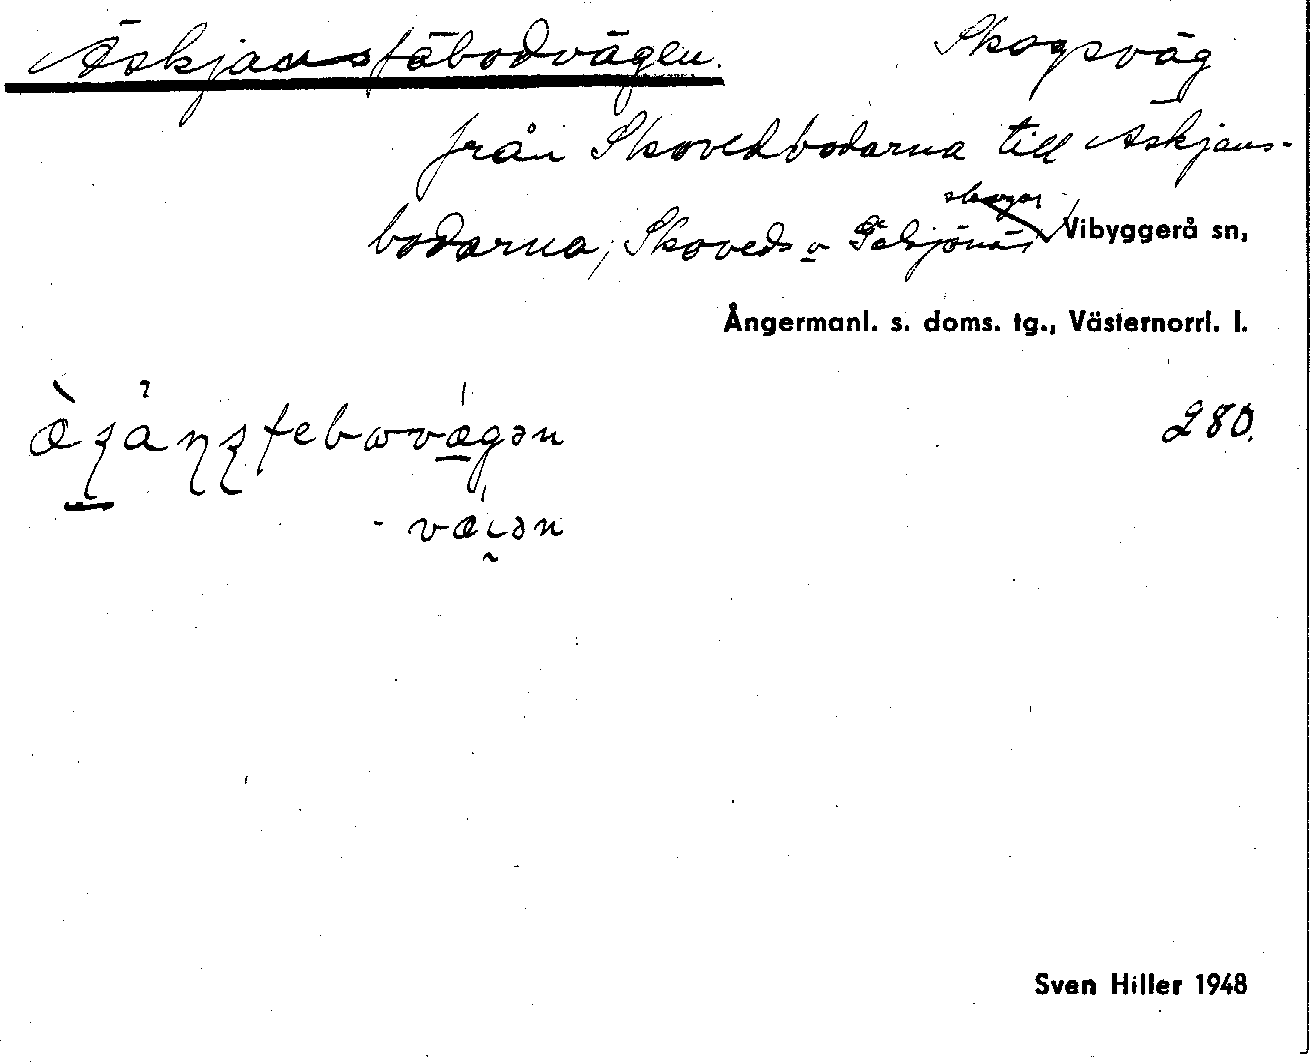 Äskjansfäbodvägen. Skogsväg
från Skovedbodarna till Äskjans-
bodarna, Skoveds o skogar Vibyggerå sn,
Ångermanl. s. doms. tg., Västernorrl. l.
280.
Sven Hiller 1948